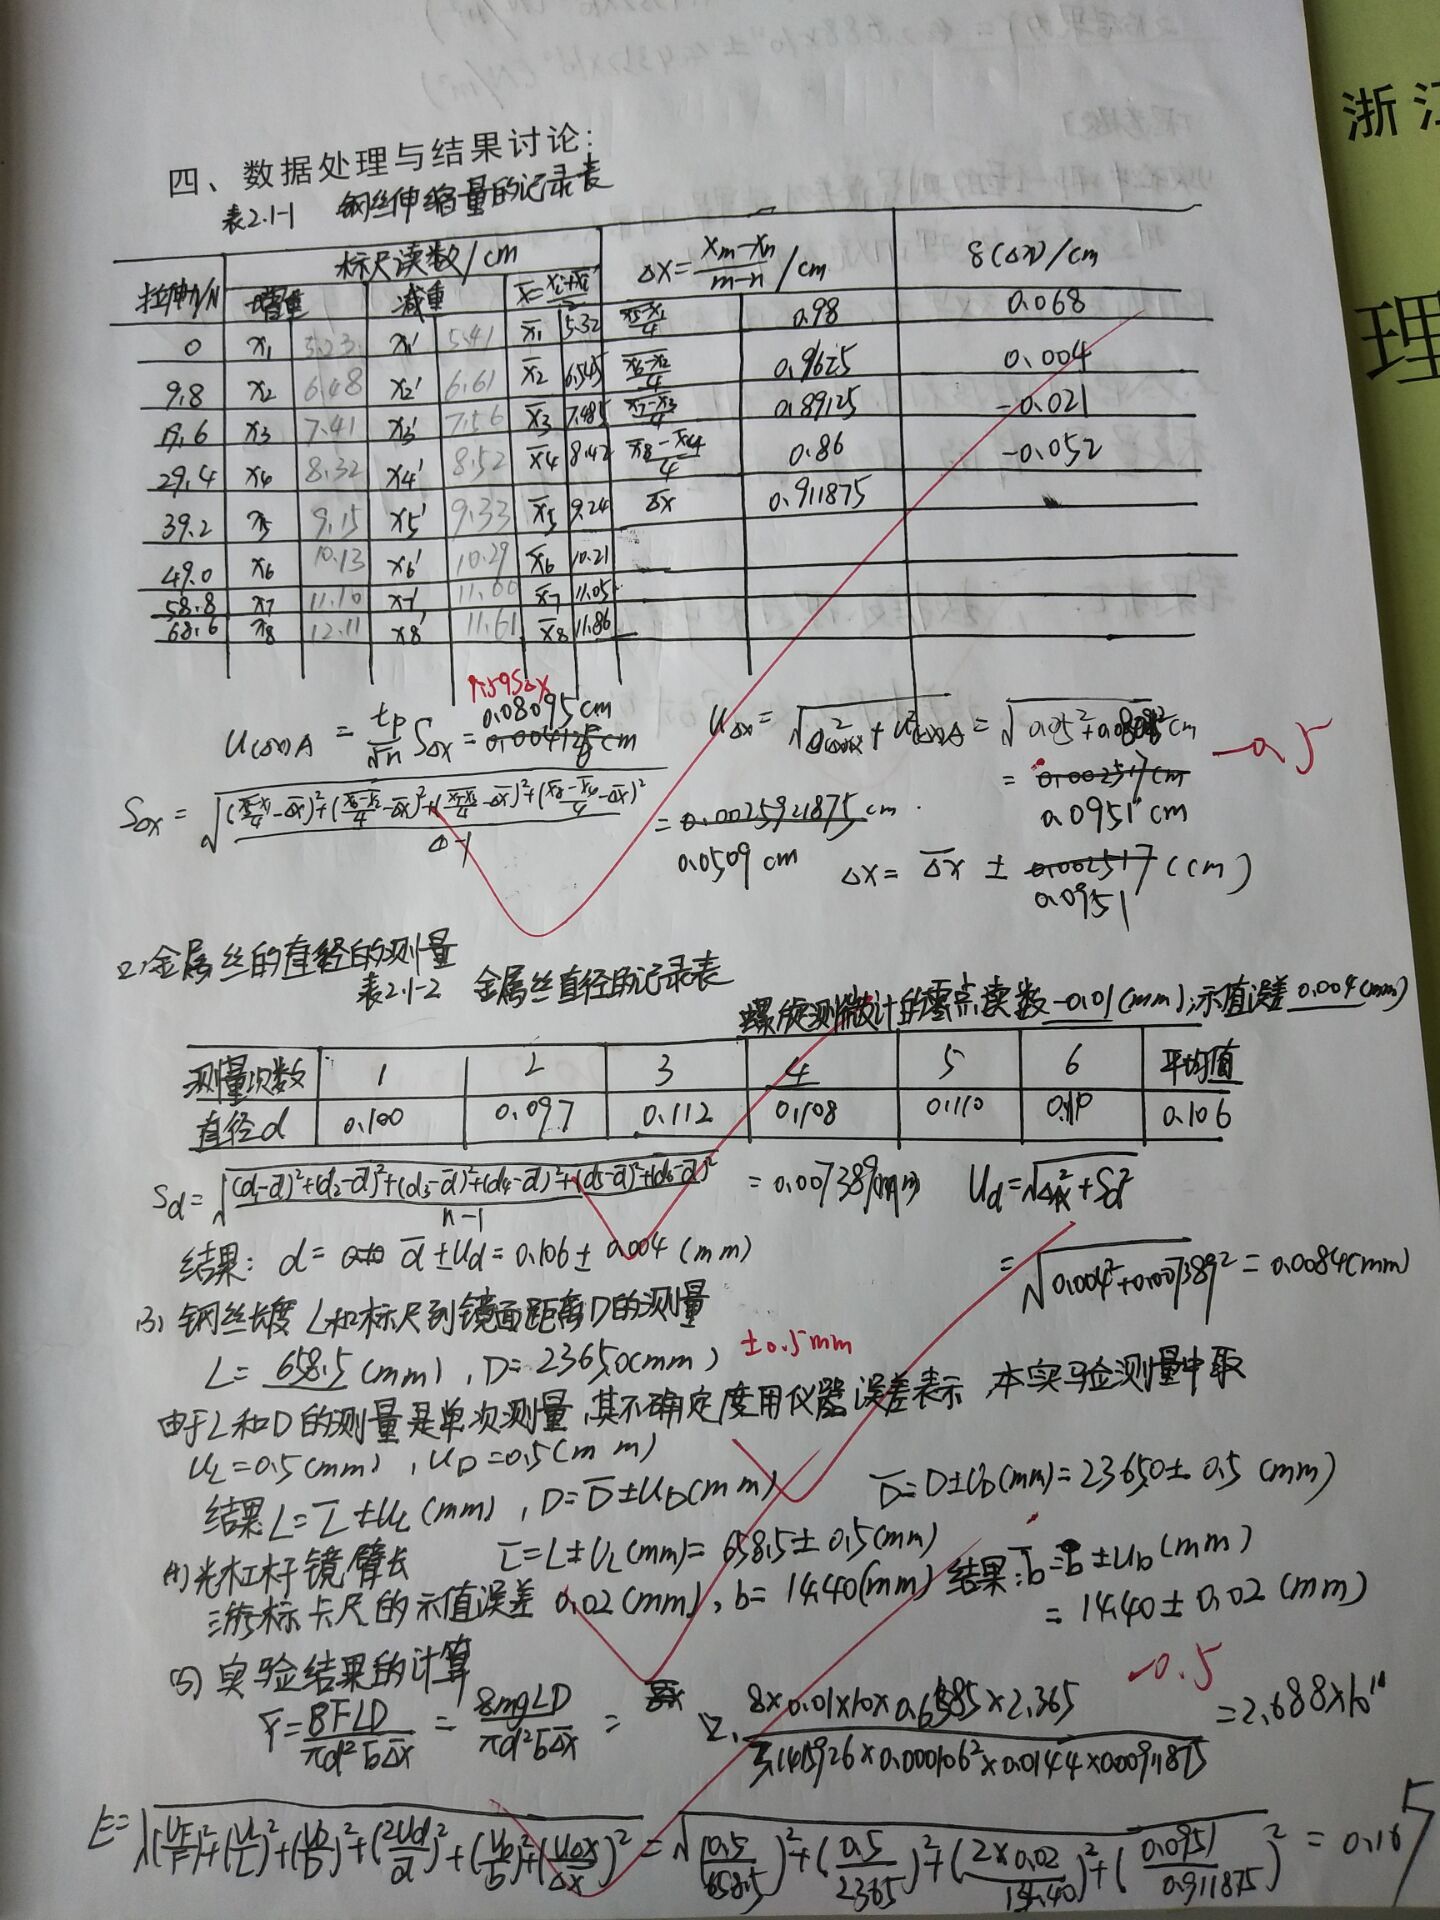 浙江
理
四、数据处理与结果讨论:
表2.1-1 钢丝伸缩量的记录表
拉伸力/N 标尺读数/cm Δx=(xm-xn)/(m-n) /cm δ(Δx)/cm
增重 减重 x̄=(xi+xi')/2
0 x1 5.23 x1' 5.41 x̄1 5.32 (x̄5-x̄1)/4 0.98 0.068
9.8 x2 6.48 x2' 6.61 x̄2 6.545 (x̄6-x̄2)/4 0.9625 0.004
19.6 x3 7.41 x3' 7.56 x̄3 7.485 (x̄7-x̄3)/4 0.89125 -0.021
29.4 x4 8.32 x4' 8.52 x̄4 8.42 (x̄8-x̄4)/4 0.86 -0.052
39.2 x5 9.15 x5' 9.33 x̄5 9.24 Δ̄x 0.911875
49.0 x6 10.13 x6' 10.29 x̄6 10.21
58.8 x7 11.10 x7' 11.00 x̄7 11.05
68.6 x8 12.11 x8' 11.61 x̄8 11.86
1.59SΔx
U(Δx)A = tp/√n SΔx = 0.08095cm
-0.5
= 0.0951cm
SΔx = √(((x̄5-x̄1)/4-Δ̄x)²+((x̄6-x̄2)/4-Δ̄x)²+((x̄7-x̄3)/4-Δ̄x)²+((x̄8-x̄4)/4-Δ̄x)²)/(4-1) = 0.0025921875cm
0.0509cm
Δx = Δ̄x ± 0.002517(cm)
0.0951
2)金属丝的直径的测量
表2.1-2 金属丝直径的记录表
螺旋测微计的零点读数-0.01(mm);示值误差0.004(mm)
测量次数 1 2 3 4 5 6 平均值
直径d 0.100 0.097 0.112 0.108 0.110 0.110 0.106
Sd = √((d1-d̄)²+(d2-d̄)²+(d3-d̄)²+(d4-d̄)²+(d5-d̄)²+(d6-d̄)²)/(n-1) = 0.007389mm
结果: d = d̄±Ud = 0.106±0.004(mm)
= √(0.004²+0.007389²) = 0.0084(mm)
(3) 钢丝长度L和标尺到镜面距离D的测量
L= 658.5(mm), D=2365.0(mm) ±0.5mm
由于L和D的测量是单次测量,其不确定度用仪器误差表示 本实验测量中取
UL=0.5(mm), UD=0.5(mm)
结果L=L̄±UL(mm), D=D̄±UD(mm) D̄=D±UD(mm)=2365.0±0.5(mm)
(4)光杠杆镜臂长 L̄=L±UL(mm)=658.5±0.5(mm)
游标卡尺的示值误差0.02(mm), b=14.40(mm) 结果:b̄=b̄±Ub(mm)
=14.40±0.02(mm)
(5) 实验结果的计算
-0.5
Ȳ=8FLD/(πd²b̄Δ̄x) = 8mgLD/(πd²b̄Δ̄x) = 8×0.01×10×0.6585×2.365/(3.1415926×0.000106²×0.0144×0.00911875) =2.688×10¹¹
E=√((UF/F)²+(UL/L)²+(UD/D)²+(2Ud/d)²+(Ub/b)²+(UΔx/Δx)²) = √((0.5/658.5)²+(0.5/2365)²+(2×0.02/14.40)²+(0.0951/0.911875)²) = 0.167